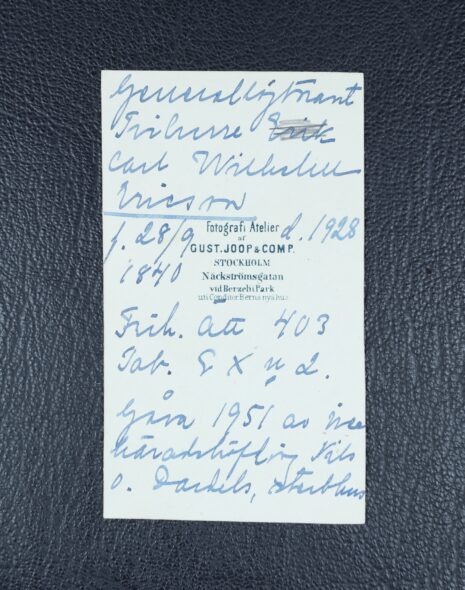 Generallöjtnant
Friherre Erik
Carl Wilhelm
Ericson
f. 28/9 d. 1928
1840
Fotografi Atelier
af
GUST. JOOP & COMP.
STOCKHOLM
Näckströmsgatan
vid Berzelii Park
uti Conditor Berns nya hus
Frih. Ätt 403
Tab. X n 2.
Gåva 1951 av
häradshöfding Nils
v. Dardels, sterbhus